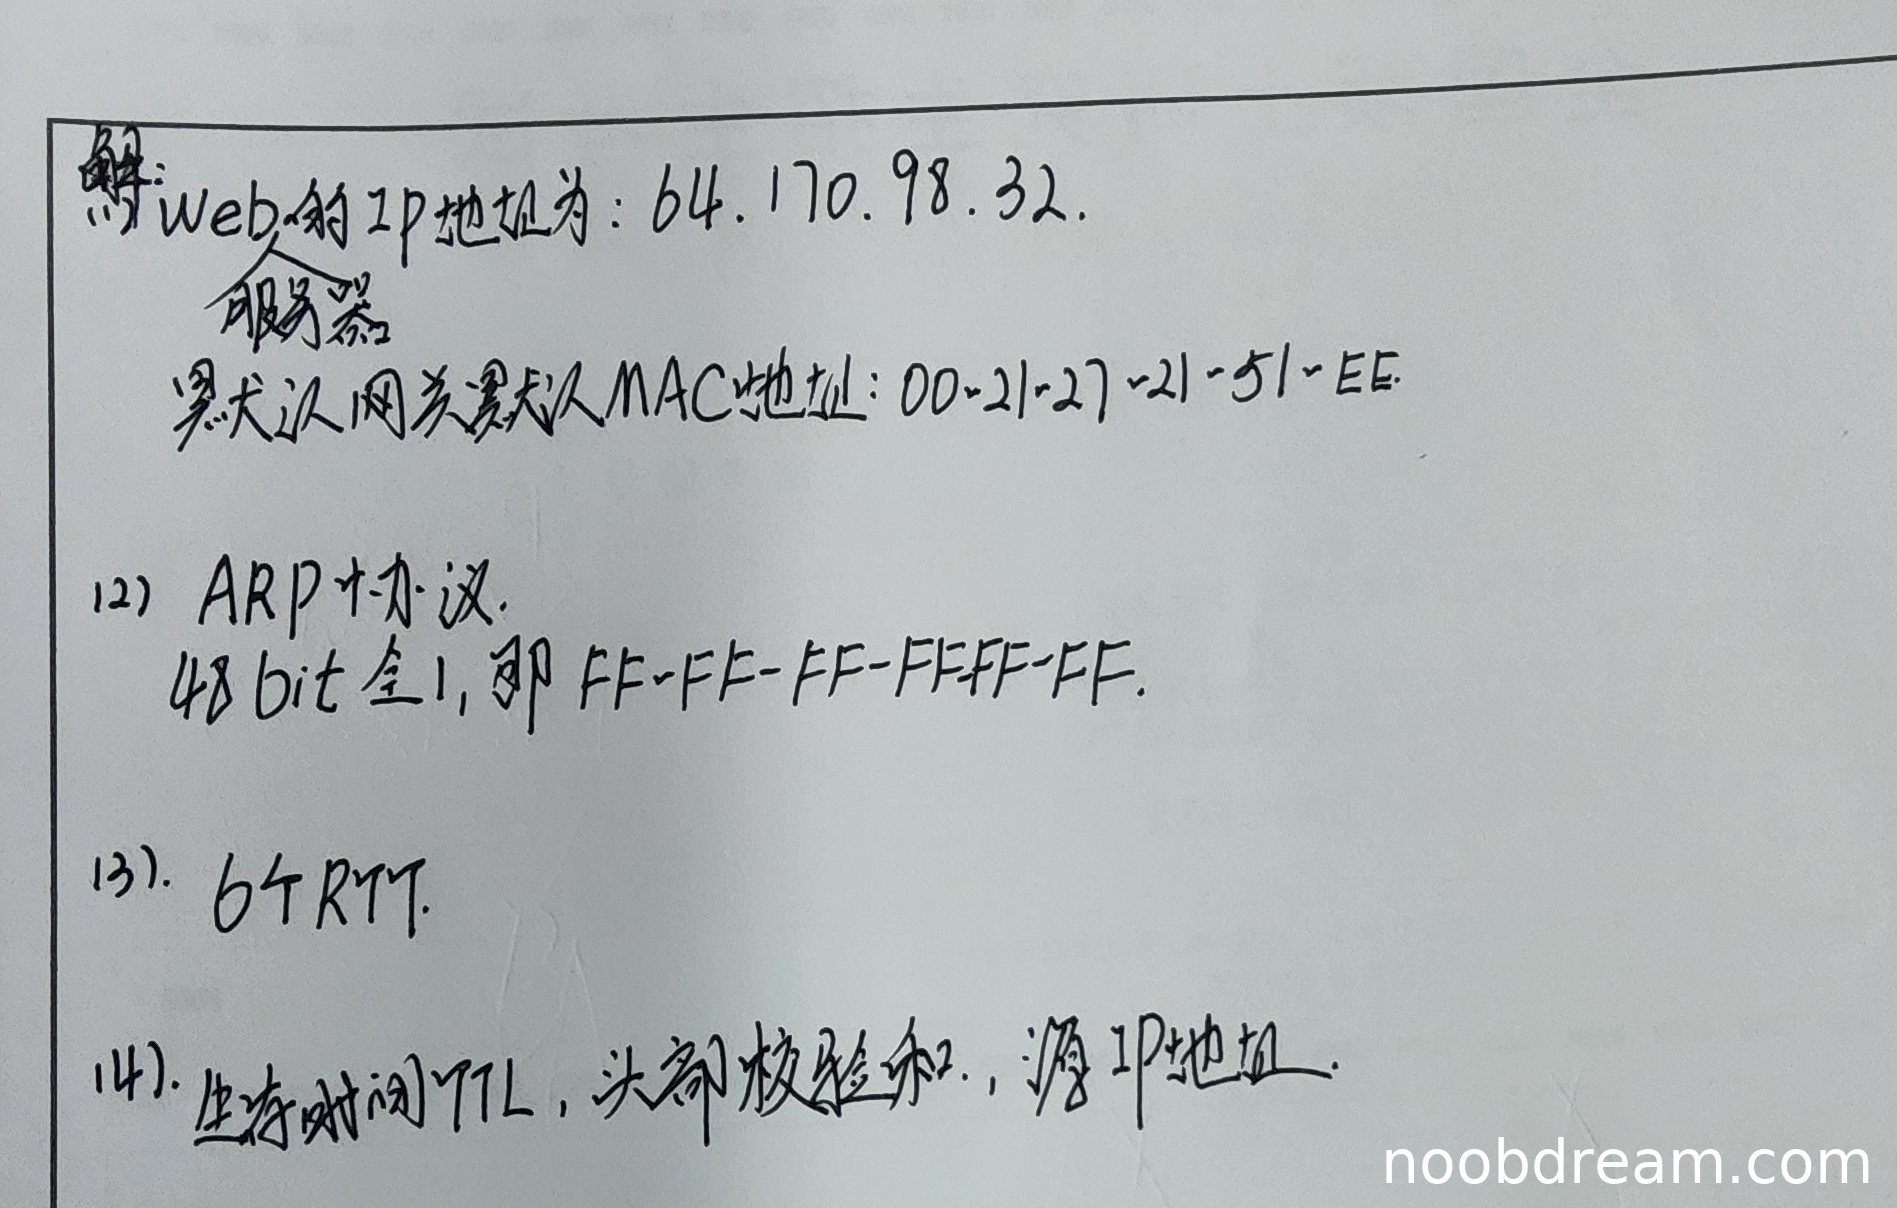 解：
Web服务器的IP地址为：64.170.98.32.
默认网关默认MAC地址：00-21-27-21-51-EE.
(2) ARP协议.
48bit全1,即FF-FF-FF-FFFF-FF.
(3). 6个RTT.
(4). 生存时间TTL,头部校验和.,源IP地址.
noobdream.com